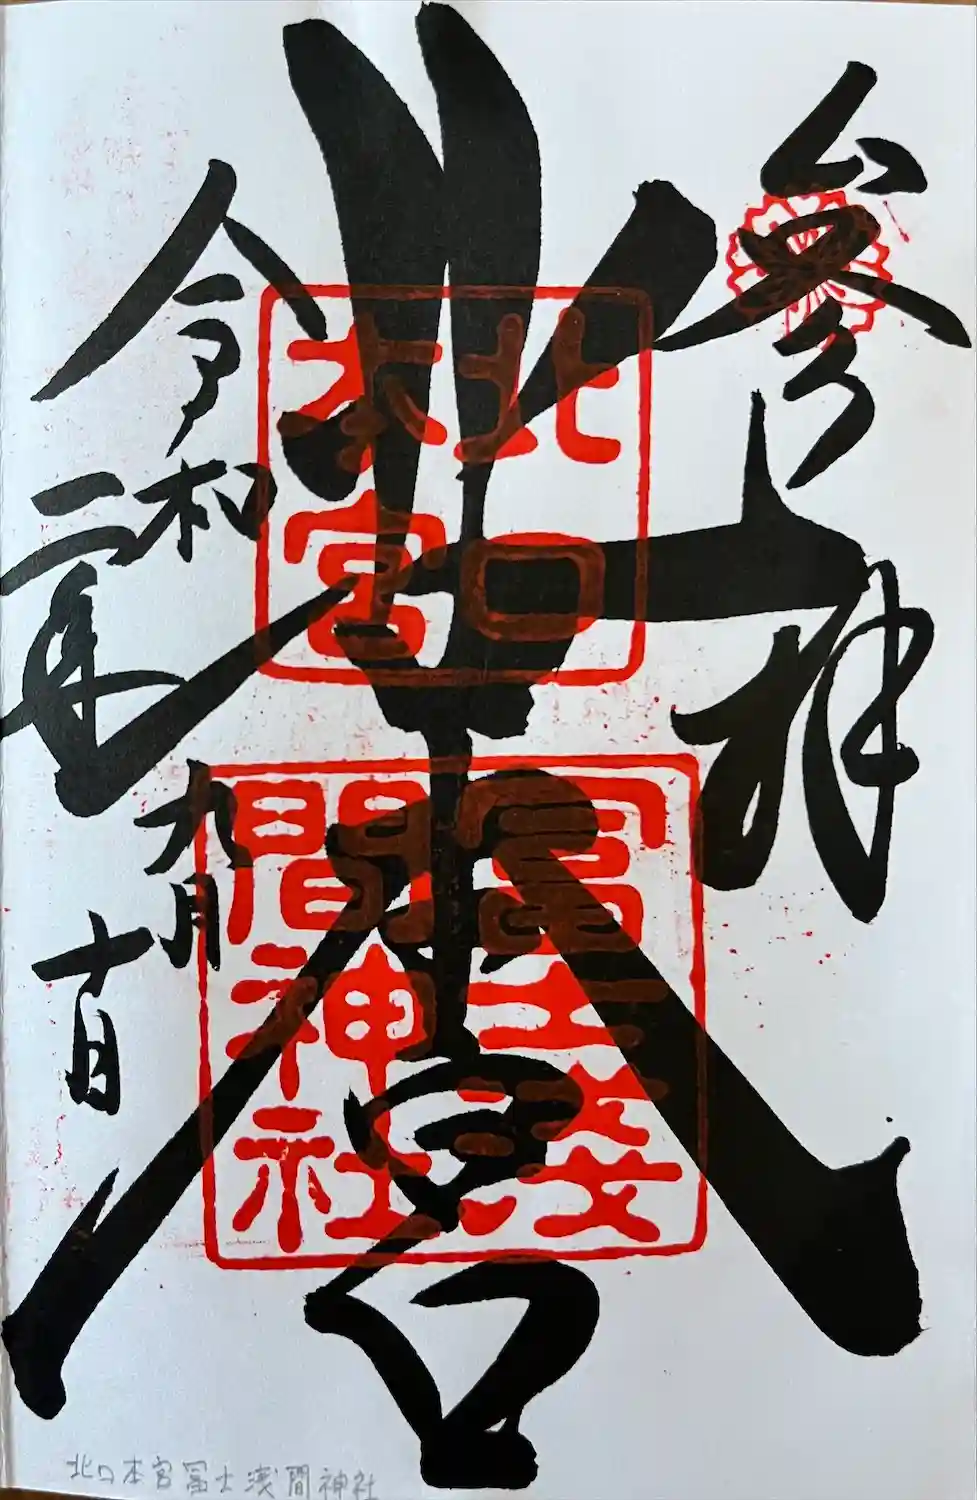 参拝
北口本宮
北口
本宮
冨士浅
間神社
令和
二年
九月
十日
北口本宮冨士浅間神社